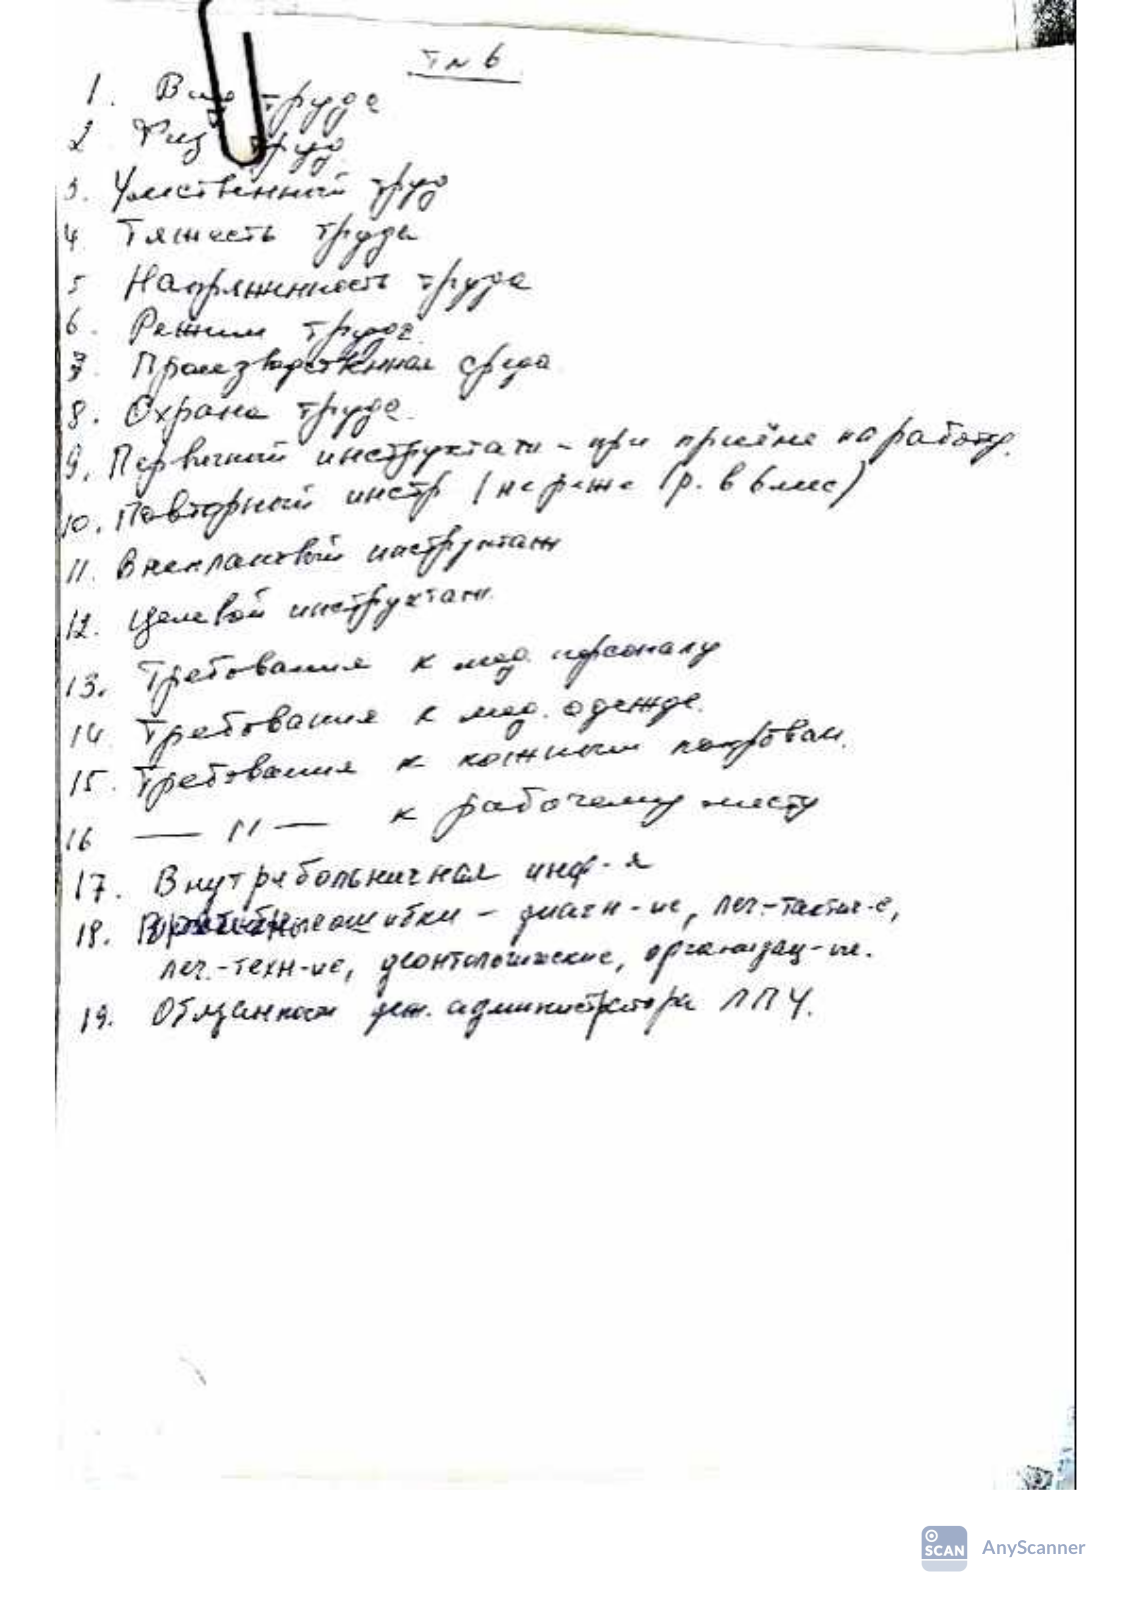 Т № 6
1. Вид труда
2 Физ труд
3. Умственный труд
4 Тяжесть труда
5 Напряженность труда
6. Режим труда
7. Производственная среда
8. Охрана труда.
9. Первичный инструктаж - при приёме на работу.
10. Повторный инстр (не реже 1 р. в 6 мес)
11. Внеплановый инструктаж
12. Целевой инструктаж.
13. Требования к мед. персоналу
14 Требования к мед. одежде.
15. Требования к кожным покровам.
16 — 11 — к рабочему месту
17. Внутрибольничная инф-я
18. Врачебные ошибки - диагн-ие, леч.-тактич-е,
леч.-техн-ие, деонтологические, организац-ие.
19. Обязанности деж. администратора ЛПУ.
SCAN AnyScanner